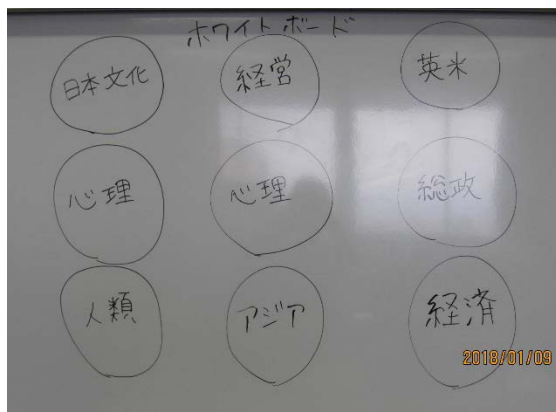 ホワイトボード
日本文化 経営 英米
心理 心理 総政
人類 アジア 経済
2018/01/09